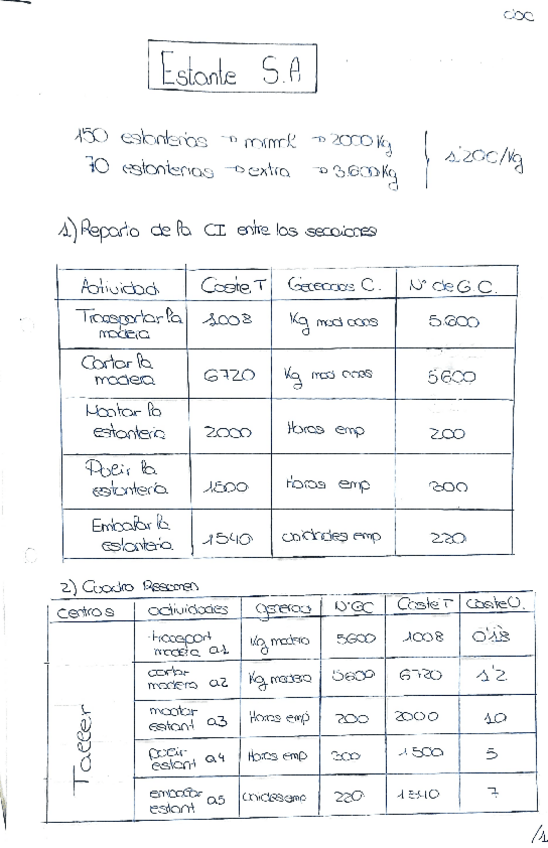 Estante S.A
150 estanterias → → 2000 Kg
70 estanterias → extra → 3.600 Kg
1'20€/Kg
1) Reparto de la CI entre las secciones
Actividad Coste T C. Nº de G.C.
Transportar la madera 1008 Kg mad cons 5.600
Cortar la madera 6720 Kg mad cons 5600
Montar la estanteria 2000 Horas emp 200
Pulir la estanteria 1500 Horas emp 300
Embalar la estanteria 1540 unidades emp 220
2) Cuadro Resumen
centros actividades Nº GC Coste T Coste U.
Taller
transport madera a1 Kg madera 5600 1008 0'18
cortar madera a2 Kg madera 5600 6720 1'2
montar estant a3 Horas emp 200 2000 10
pulir estant a4 Horas emp 300 1500 5
embalar estant a5 unidades emp 220 1540 7
/1